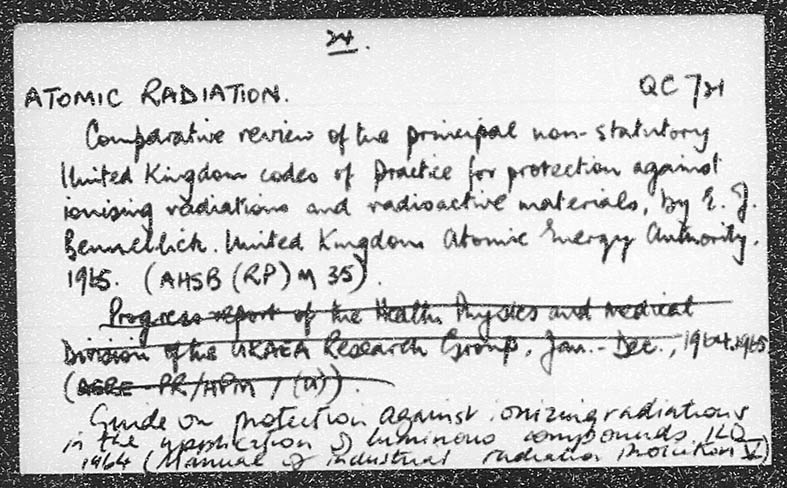 24.
ATOMIC RADIATION. QC 721
Comparative review of the principal non-statutory
United Kingdom codes of Practice for protection against
ionising radiations and radioactive materials, by E. J.
United Kingdom Atomic Energy Authority.
1965. (AHSB (RP) M 35).
Progress report of the Health Physics and medical
Division of the UKAEA Research Group. Jan.-Dec., 1964.1965
(AERE-PR/HPM /
Guide on protection against ionizing radiations
in the application of luminous compounds. ILO
1964 (Manual of industrial radiation protection V)